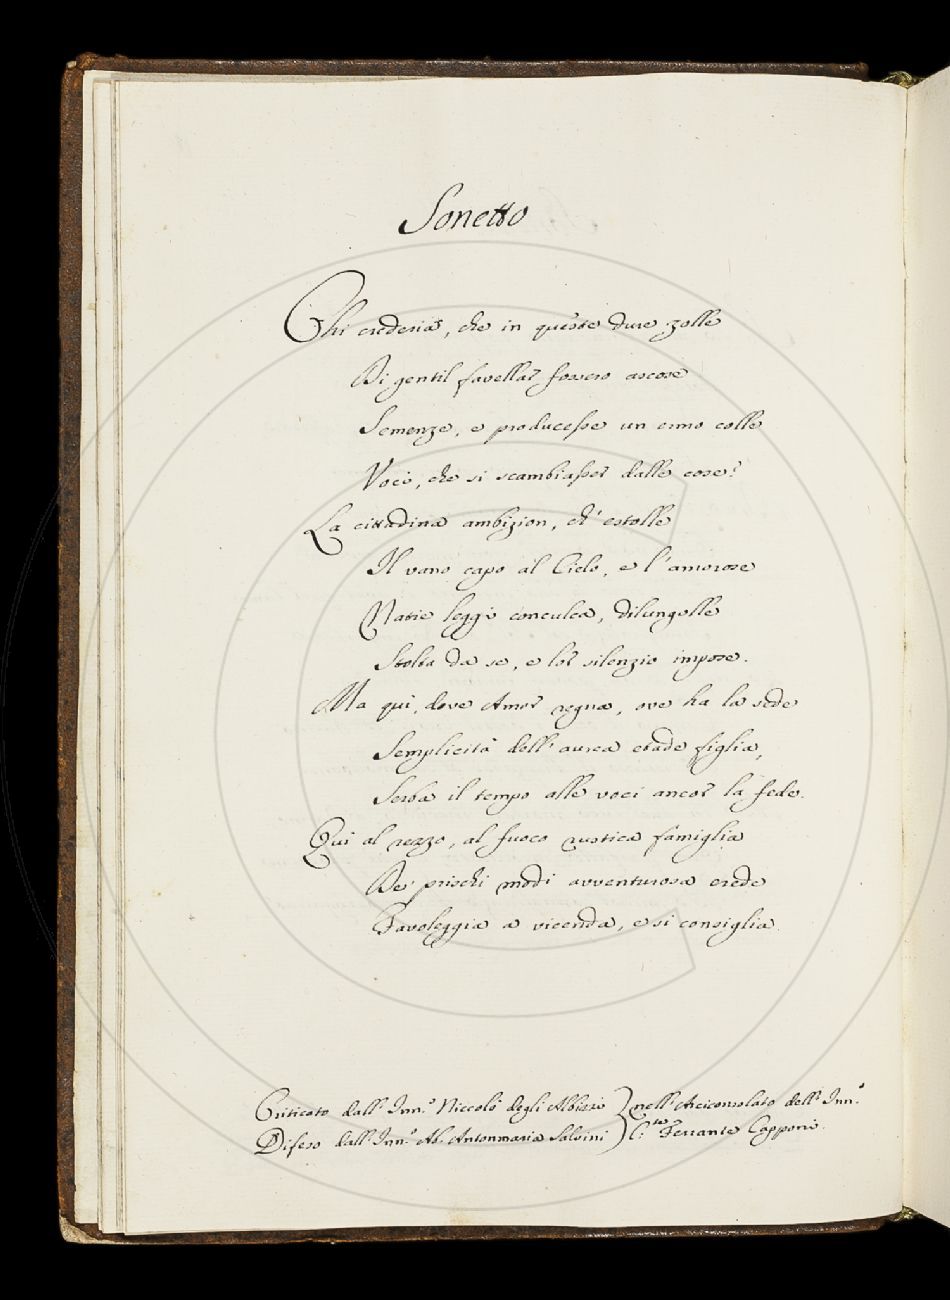 Sonetto
Chi crederia, che in queste dure zolle
Di gentil favellar fossero ascose
Semenze, e producesse un ermo colle
Voci, che si scambiasser dalle cose?
La cittadina ambizion, ch' estolle
Il vano capo al Cielo, e l' amorose
Natie leggi conculca, dilungolle
Stolta da se, e lor silenzio impose.
Ma qui, dove Amor regna, ove ha la sede
Semplicità dell' aurea etade figlia,
Serba il tempo alle voci ancor la fede.
Qui al rezzo, al fuoco rustica famiglia
De' prischi modi avventurosa erede
Favoleggia a vicenda, e si consiglia.
Criticato dall' Inn.º Niccolò degli Albizzi } nell' Arciconsolato dell' Inn.º
Difeso dall' Inn.º Ab. Antonmaria Salvini } C.te Ferrante Capponi.